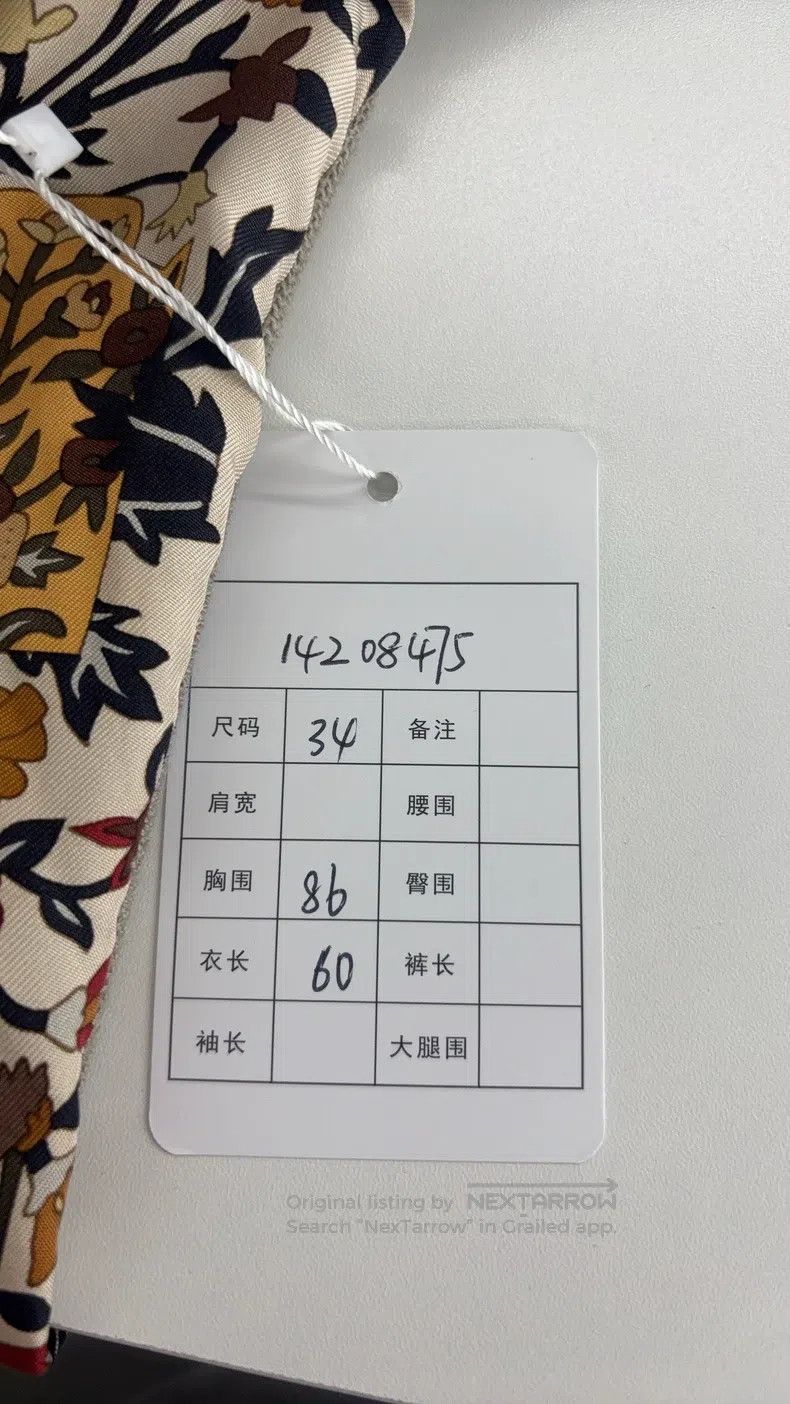 14208475
尺码 34 备注
肩宽 腰围
胸围 86 臀围
衣长 60 裤长
袖长 大腿围
Original listing by NEXTARROW
Search "NexTarrow" in Grailed app.